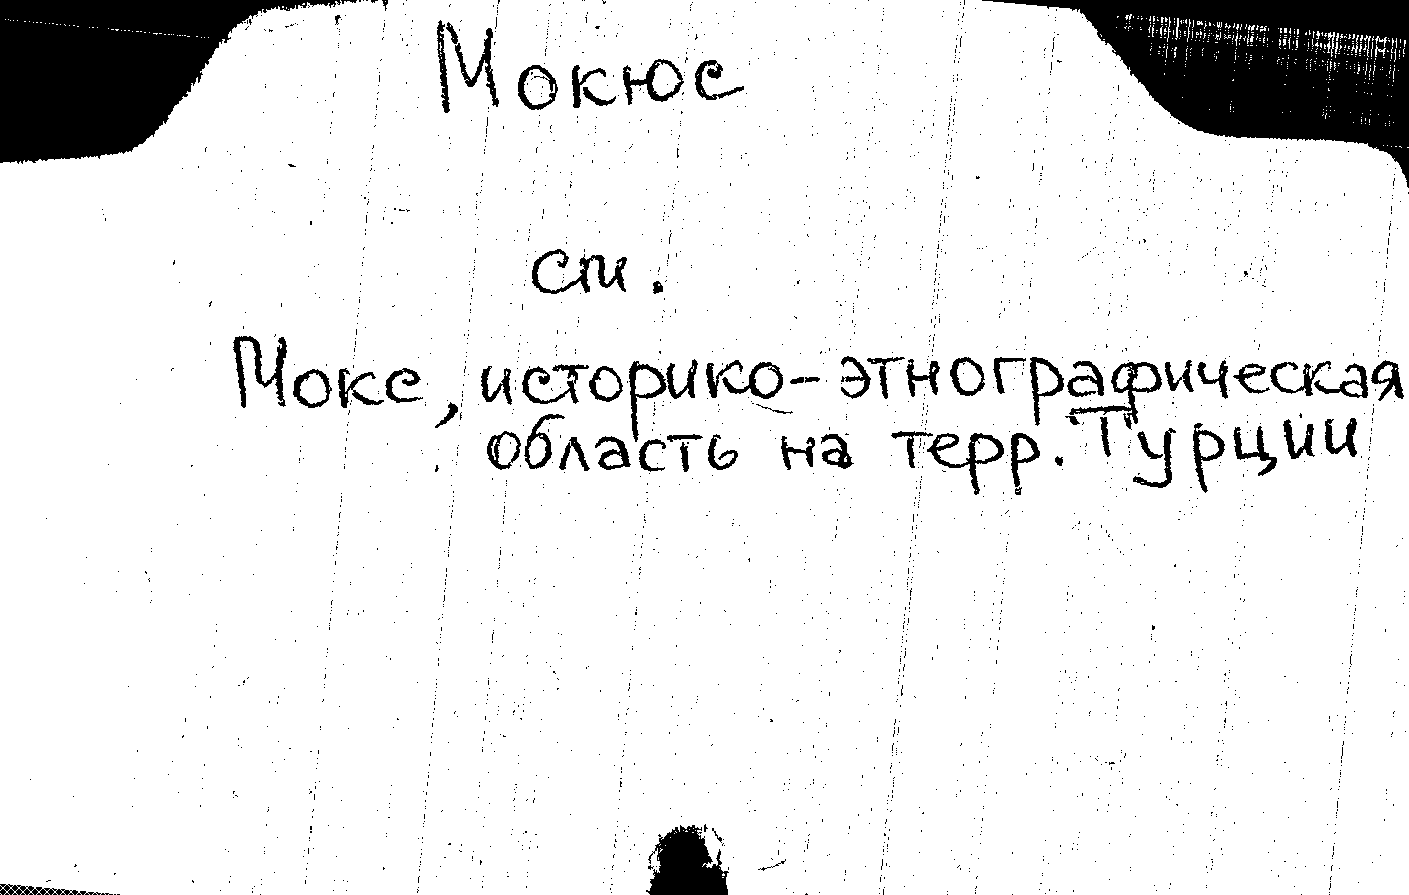 Мокюс
см.
Мокс, историко-этнографическая
область на терр. Турции